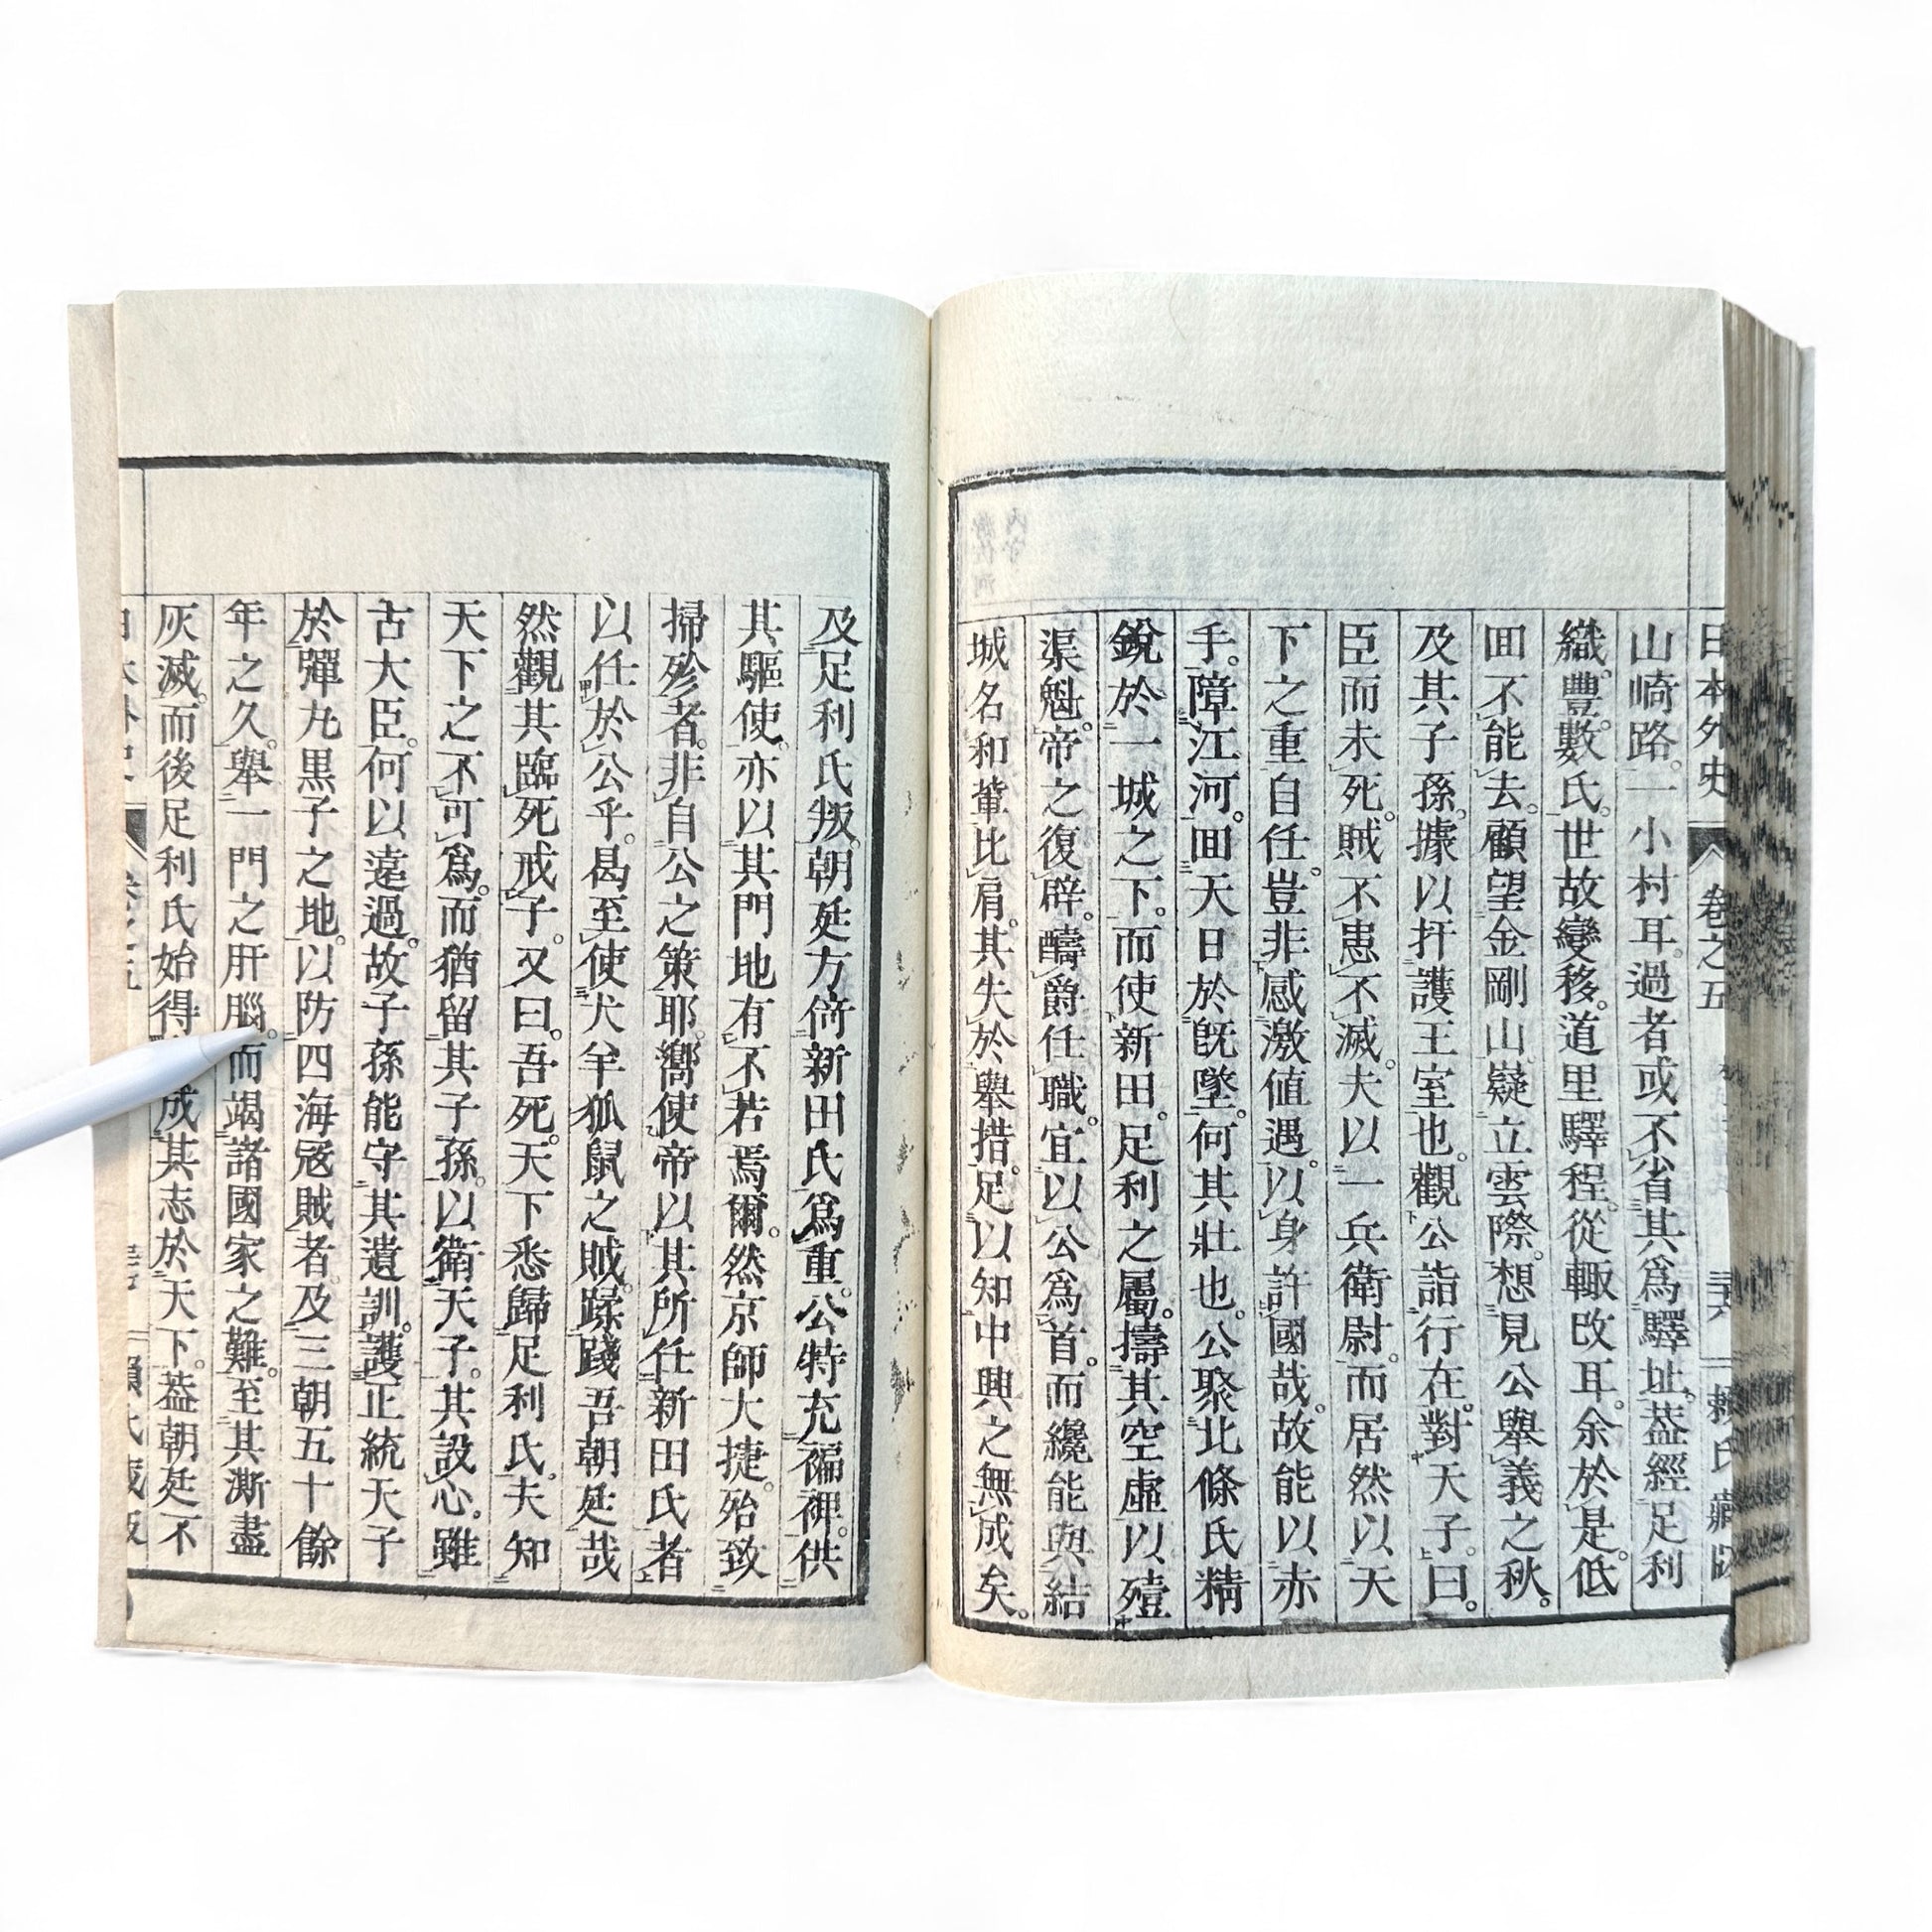 日本外史 卷之五 賴氏藏
山崎路。一小村耳。過者或不省其爲驛址。葢經足利
織。豐數氏。世故變移。道里驛程。從輙改耳。余於是。低
囬不能去。顧望金剛山。嶷立雲際。想見公舉義之秋。
及其子孫。據以扞護王室也。觀公詣行在。對天子。曰。
臣而未死。賊不患不滅。夫以一兵衛尉。而居然以天
下之重自任。豈非感激値遇。以身許國哉。故能以赤
手。障江河。囬天日於旣墜。何其壯也。公聚北條氏精
銳於一城之下。而使新田。足利之屬。擣其空虛以殪
渠魁。帝之復辟。疇爵任職。宜以公爲首。而纔能與結
城名和輩比肩。其失於舉措。足以知中興之無成矣。
及足利氏叛。朝廷方倚新田氏爲重。公特充褊裨。供
其驅使。亦以其門地有不若焉爾。然京師大捷。殆致
掃殄者。非自公之策耶。嚮使帝以其所任新田氏者
以任於公乎。曷至使犬羊狐鼠之賊。蹂踐吾朝廷哉
然觀其臨死戒子。又曰。吾死。天下悉歸足利氏。夫知
天下之不可爲。而猶留其子孫。以衛天子。其設心。雖
古大臣。何以遠過。故子孫能守其遺訓。護正統天子
於彈丸黑子之地。以防四海冦賊者。及三朝五十餘
年之久。舉一門之肝腦。而竭諸國家之難。至其澌盡
灰滅。而後足利氏始得成其志於天下。葢朝廷不